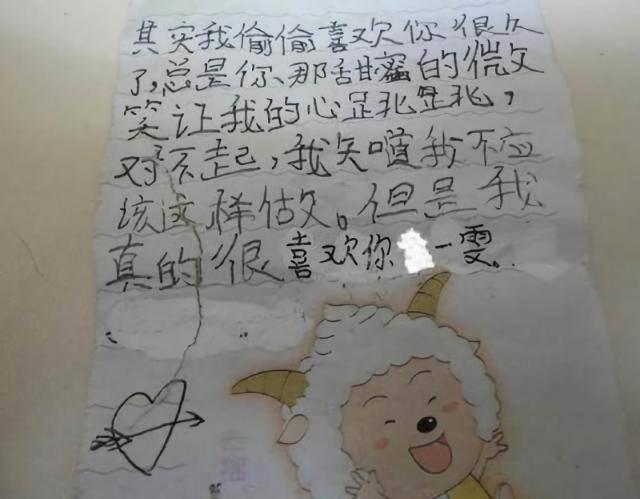 其实我偷偷喜欢你很久
了,总是你、那甜蜜的微
笑让我的心是北是北,
对不起,我矢道我不应
该这样做。但是我
真的很喜欢你 一雯。